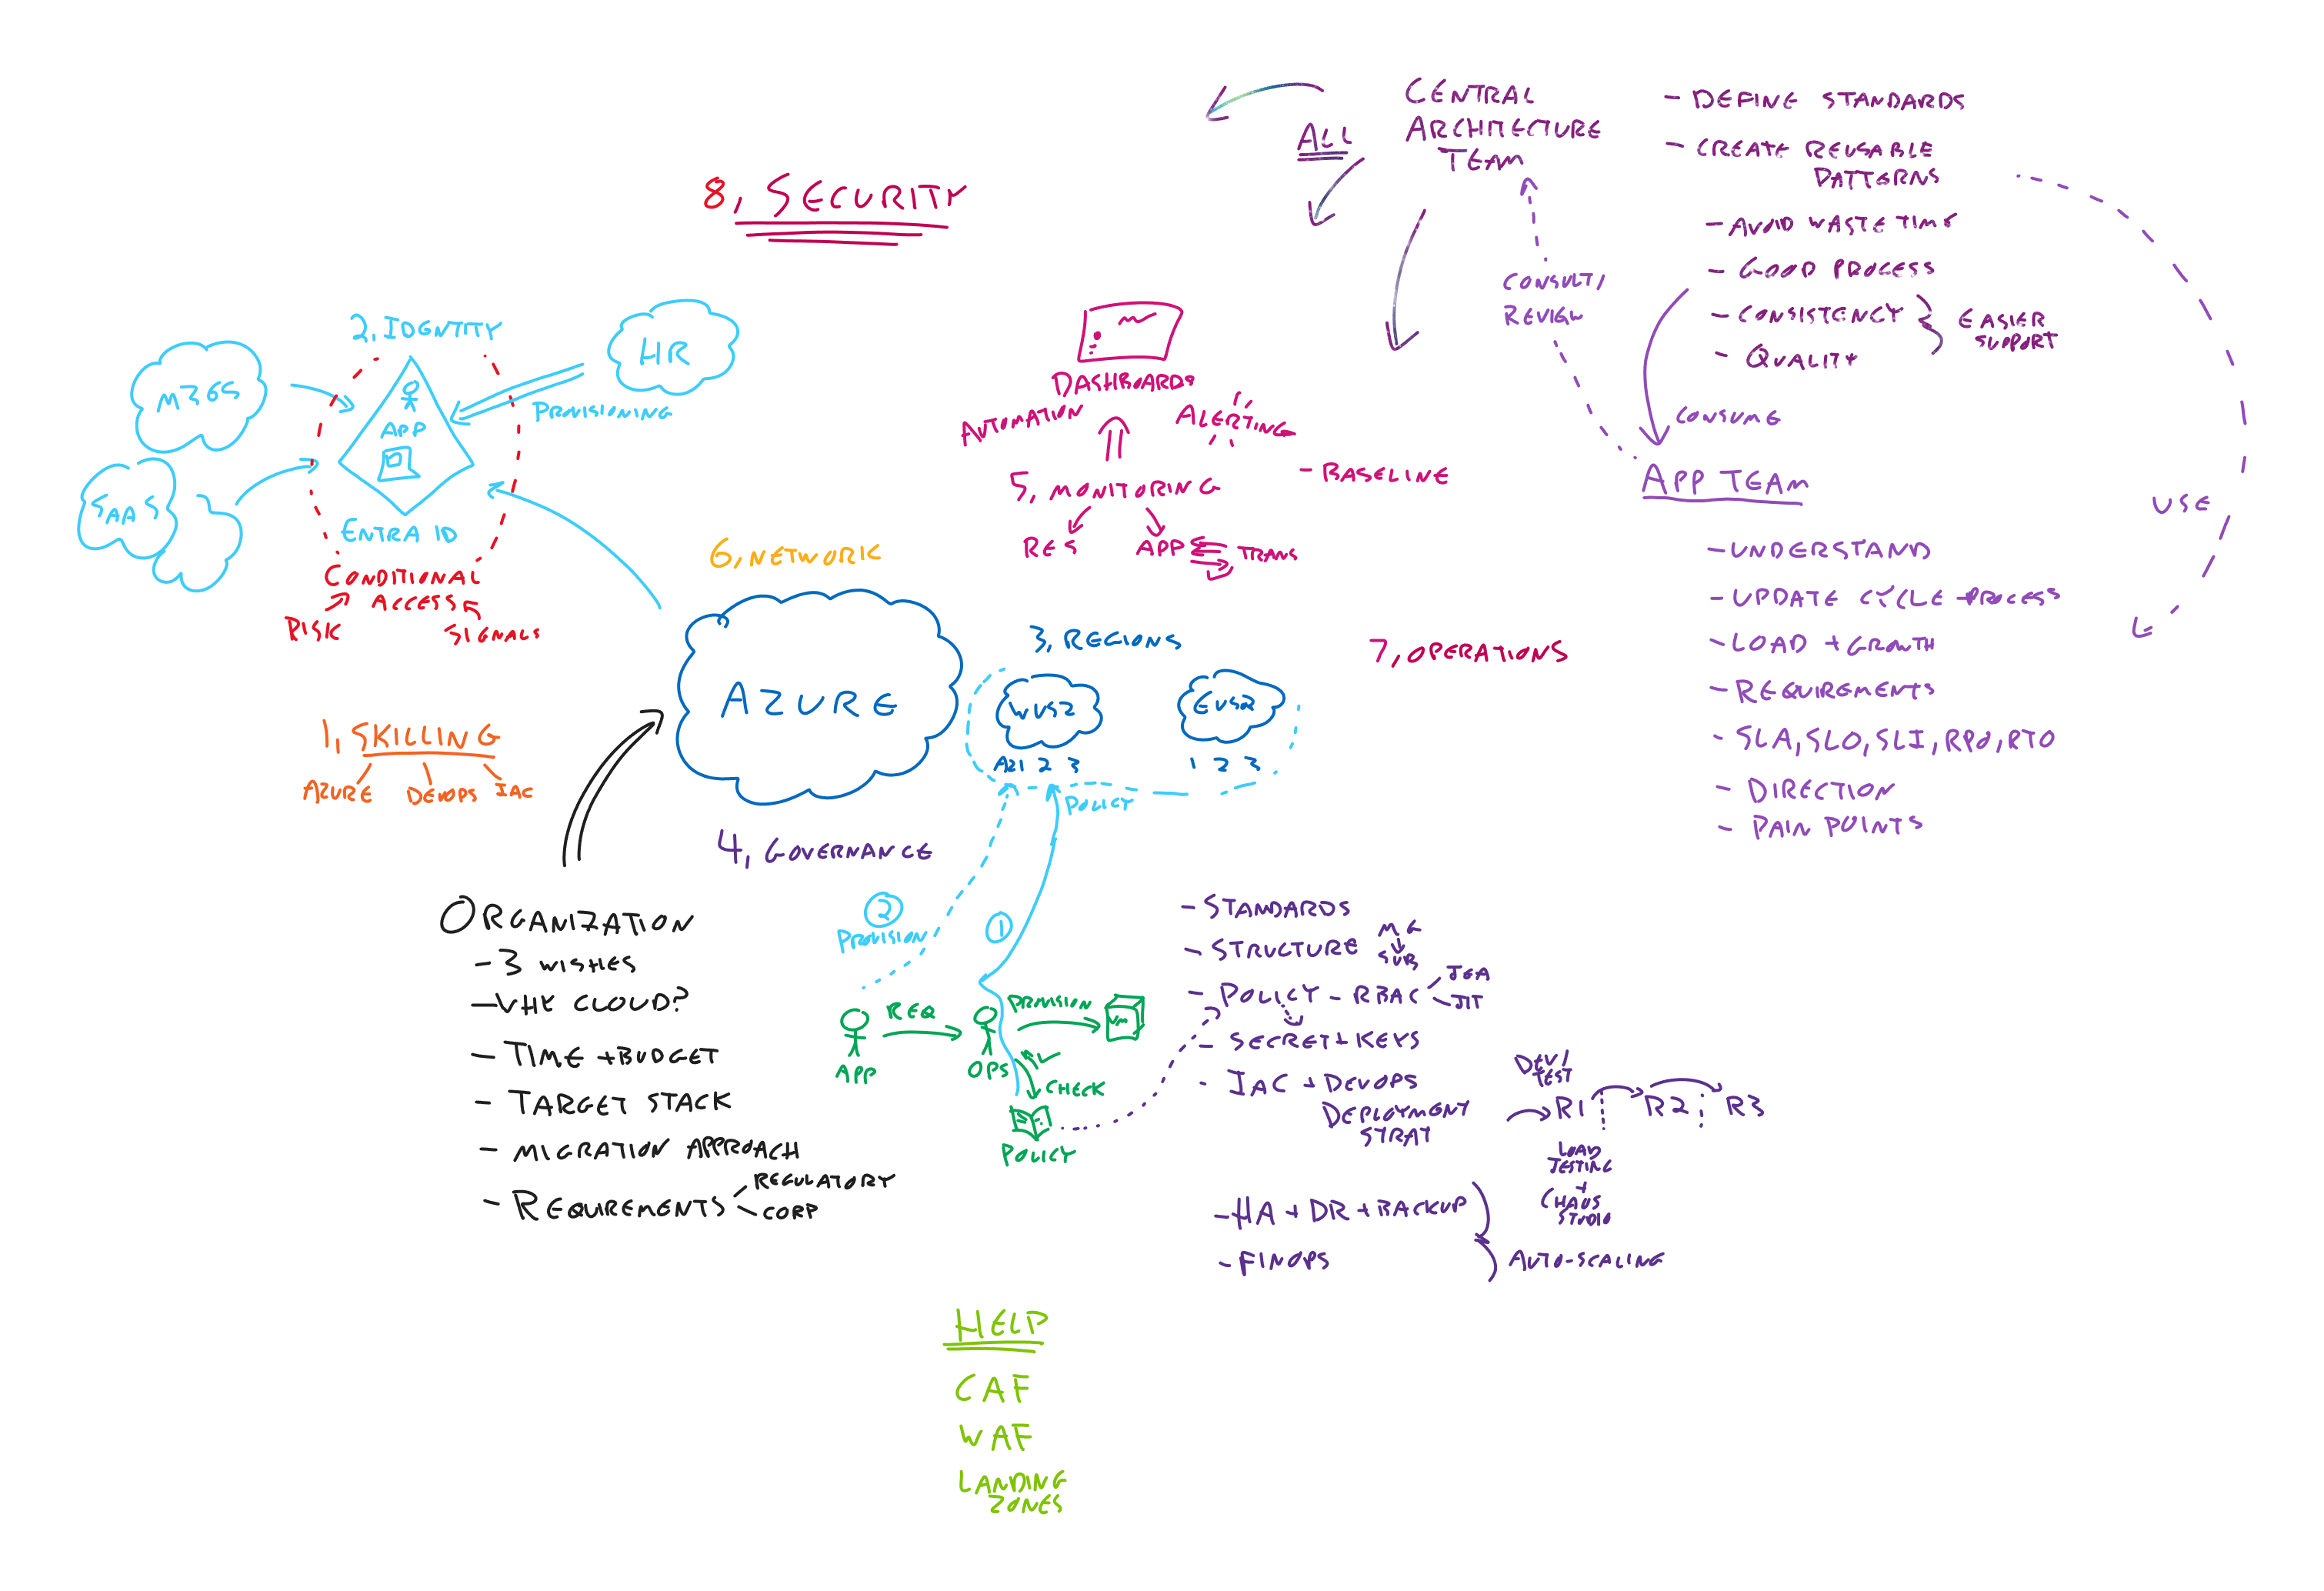 8, SECURITY
ALL
CENTRAL
ARCHITECTURE
TEAM
- DEFINE STANDARDS
- CREATE REUSABLE
PATTERNS
- AVOID WASTE TIME
- GOOD PROCESS
- CONSISTENCY
- QUALITY
EASIER
SUPPORT
CONSULT/
REVIEW
CONSUME
USE
APP TEAM
- UNDERSTAND
- UPDATE CYCLE + PROCESS
- LOAD + GROWTH
- REQUIREMENTS
- SLA, SLO, SLI, RPO, RTO
- DIRECTION
- PAIN POINTS
2, IDENTITY
M365
SAAS
HR
PROVISIONING
APP
ENTRA ID
CONDITIONAL
ACCESS
RISK
SIGNALS
DASHBOARDS
AUTOMATION
ALERTING
5, MONITORING
- BASELINE
RES
APP
TRANS
6, NETWORK
AZURE
3, REGIONS
WUS2
EUS2
AZ1 2 3
1 2 3
POLICY
7, OPERATIONS
1, SKILLING
AZURE
DEVOPS
IAC
4, GOVERNANCE
ORGANIZATION
- 3 WISHES
- WHY CLOUD?
- TIME + BUDGET
- TARGET STACK
- MIGRATION APPROACH
- REQUIREMENTS
REGULATORY
CORP
2
PROVISION
1
APP
REQ
OPS
PROVISION
VM
CHECK
POLICY
- STANDARDS
- STRUCTURE
MG
SUB
- POLICY - RBAC
JEA
JIT
- SECRET + KEYS
- IAC + DEVOPS
DEPLOYMENT
STRAT
DEV/
TEST
R1
R2
R3
LOAD
TESTING
+
CHAOS
STUDIO
- HA + DR + BACKUP
- FINOPS
AUTO-SCALING
HELP
CAF
WAF
LANDING
ZONES